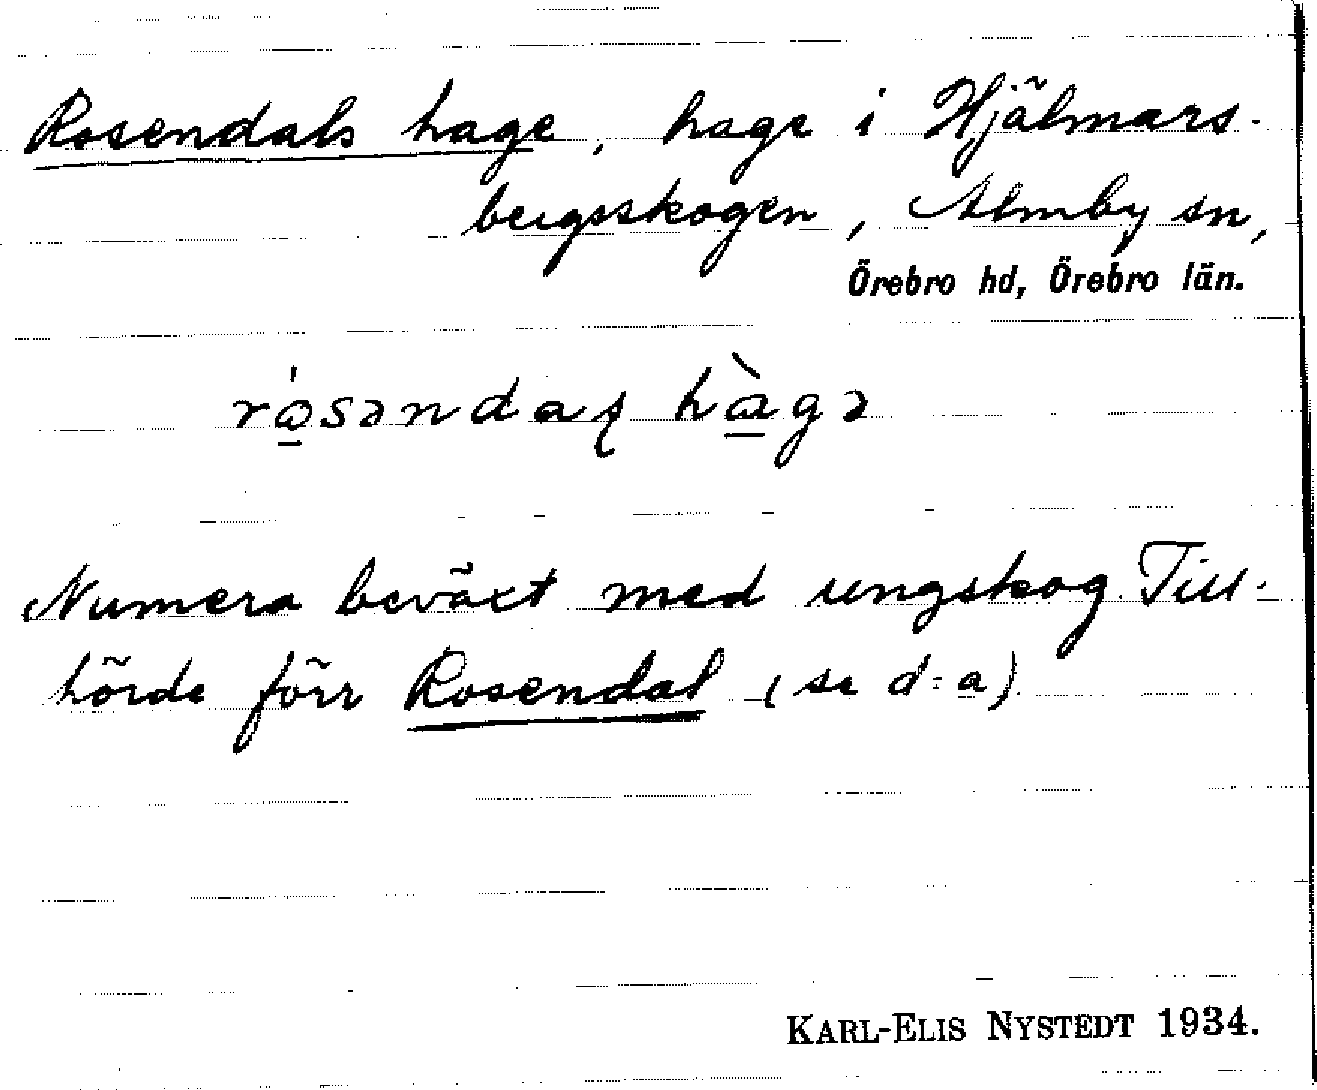 Rosendals hage, hage i Hjälmars-
bergsskogen, Almby sn,
Örebro hd, Örebro län.
rósəndaʂ hàgə
Numera beväxt med ungskog. Till-
hörde förr Rosendal (se d:a)
KARL-ELIS NYSTEDT 1934.